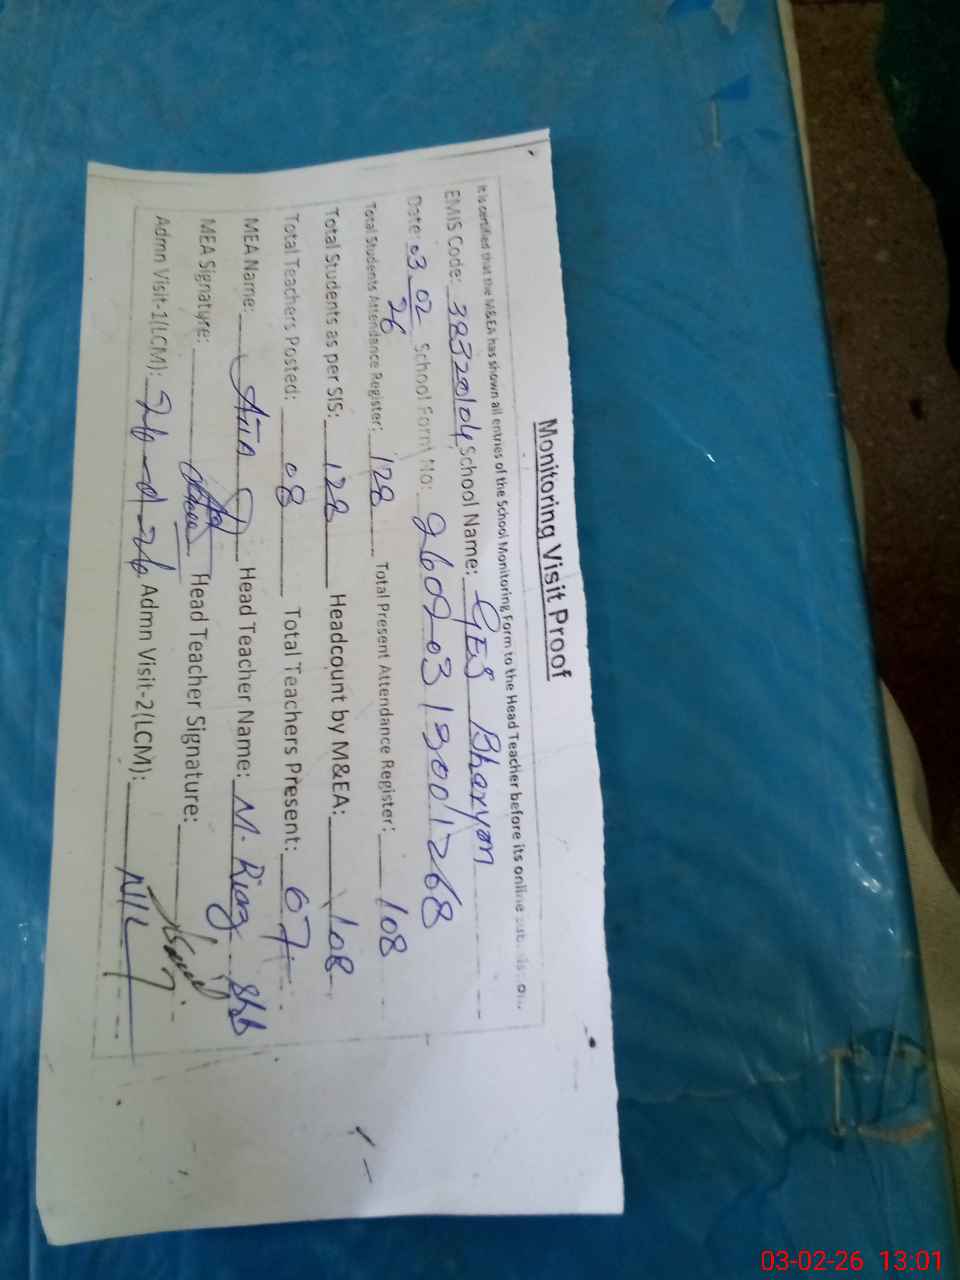 Monitoring Visit Proof
It is certified that the M&EA has shown all entries of the School Monitoring Form to the Head Teacher before its online
EMIS Code: 38320104 School Name: GES Bharyan
Date: 03 02 26 School Form No:
Total Students Attendance Register: 128 Total Present Attendance Register: 108
Total Students as per SIS: 128 Headcount by M&EA: 108
Total Teachers Posted: 08 Total Teachers Present: 07
MEA Name: Head Teacher Name: M. Riaz
MEA Signature: Head Teacher Signature:
Admn Visit-1(LCM): Admn Visit-2(LCM): NIL
03-02-26 13:01